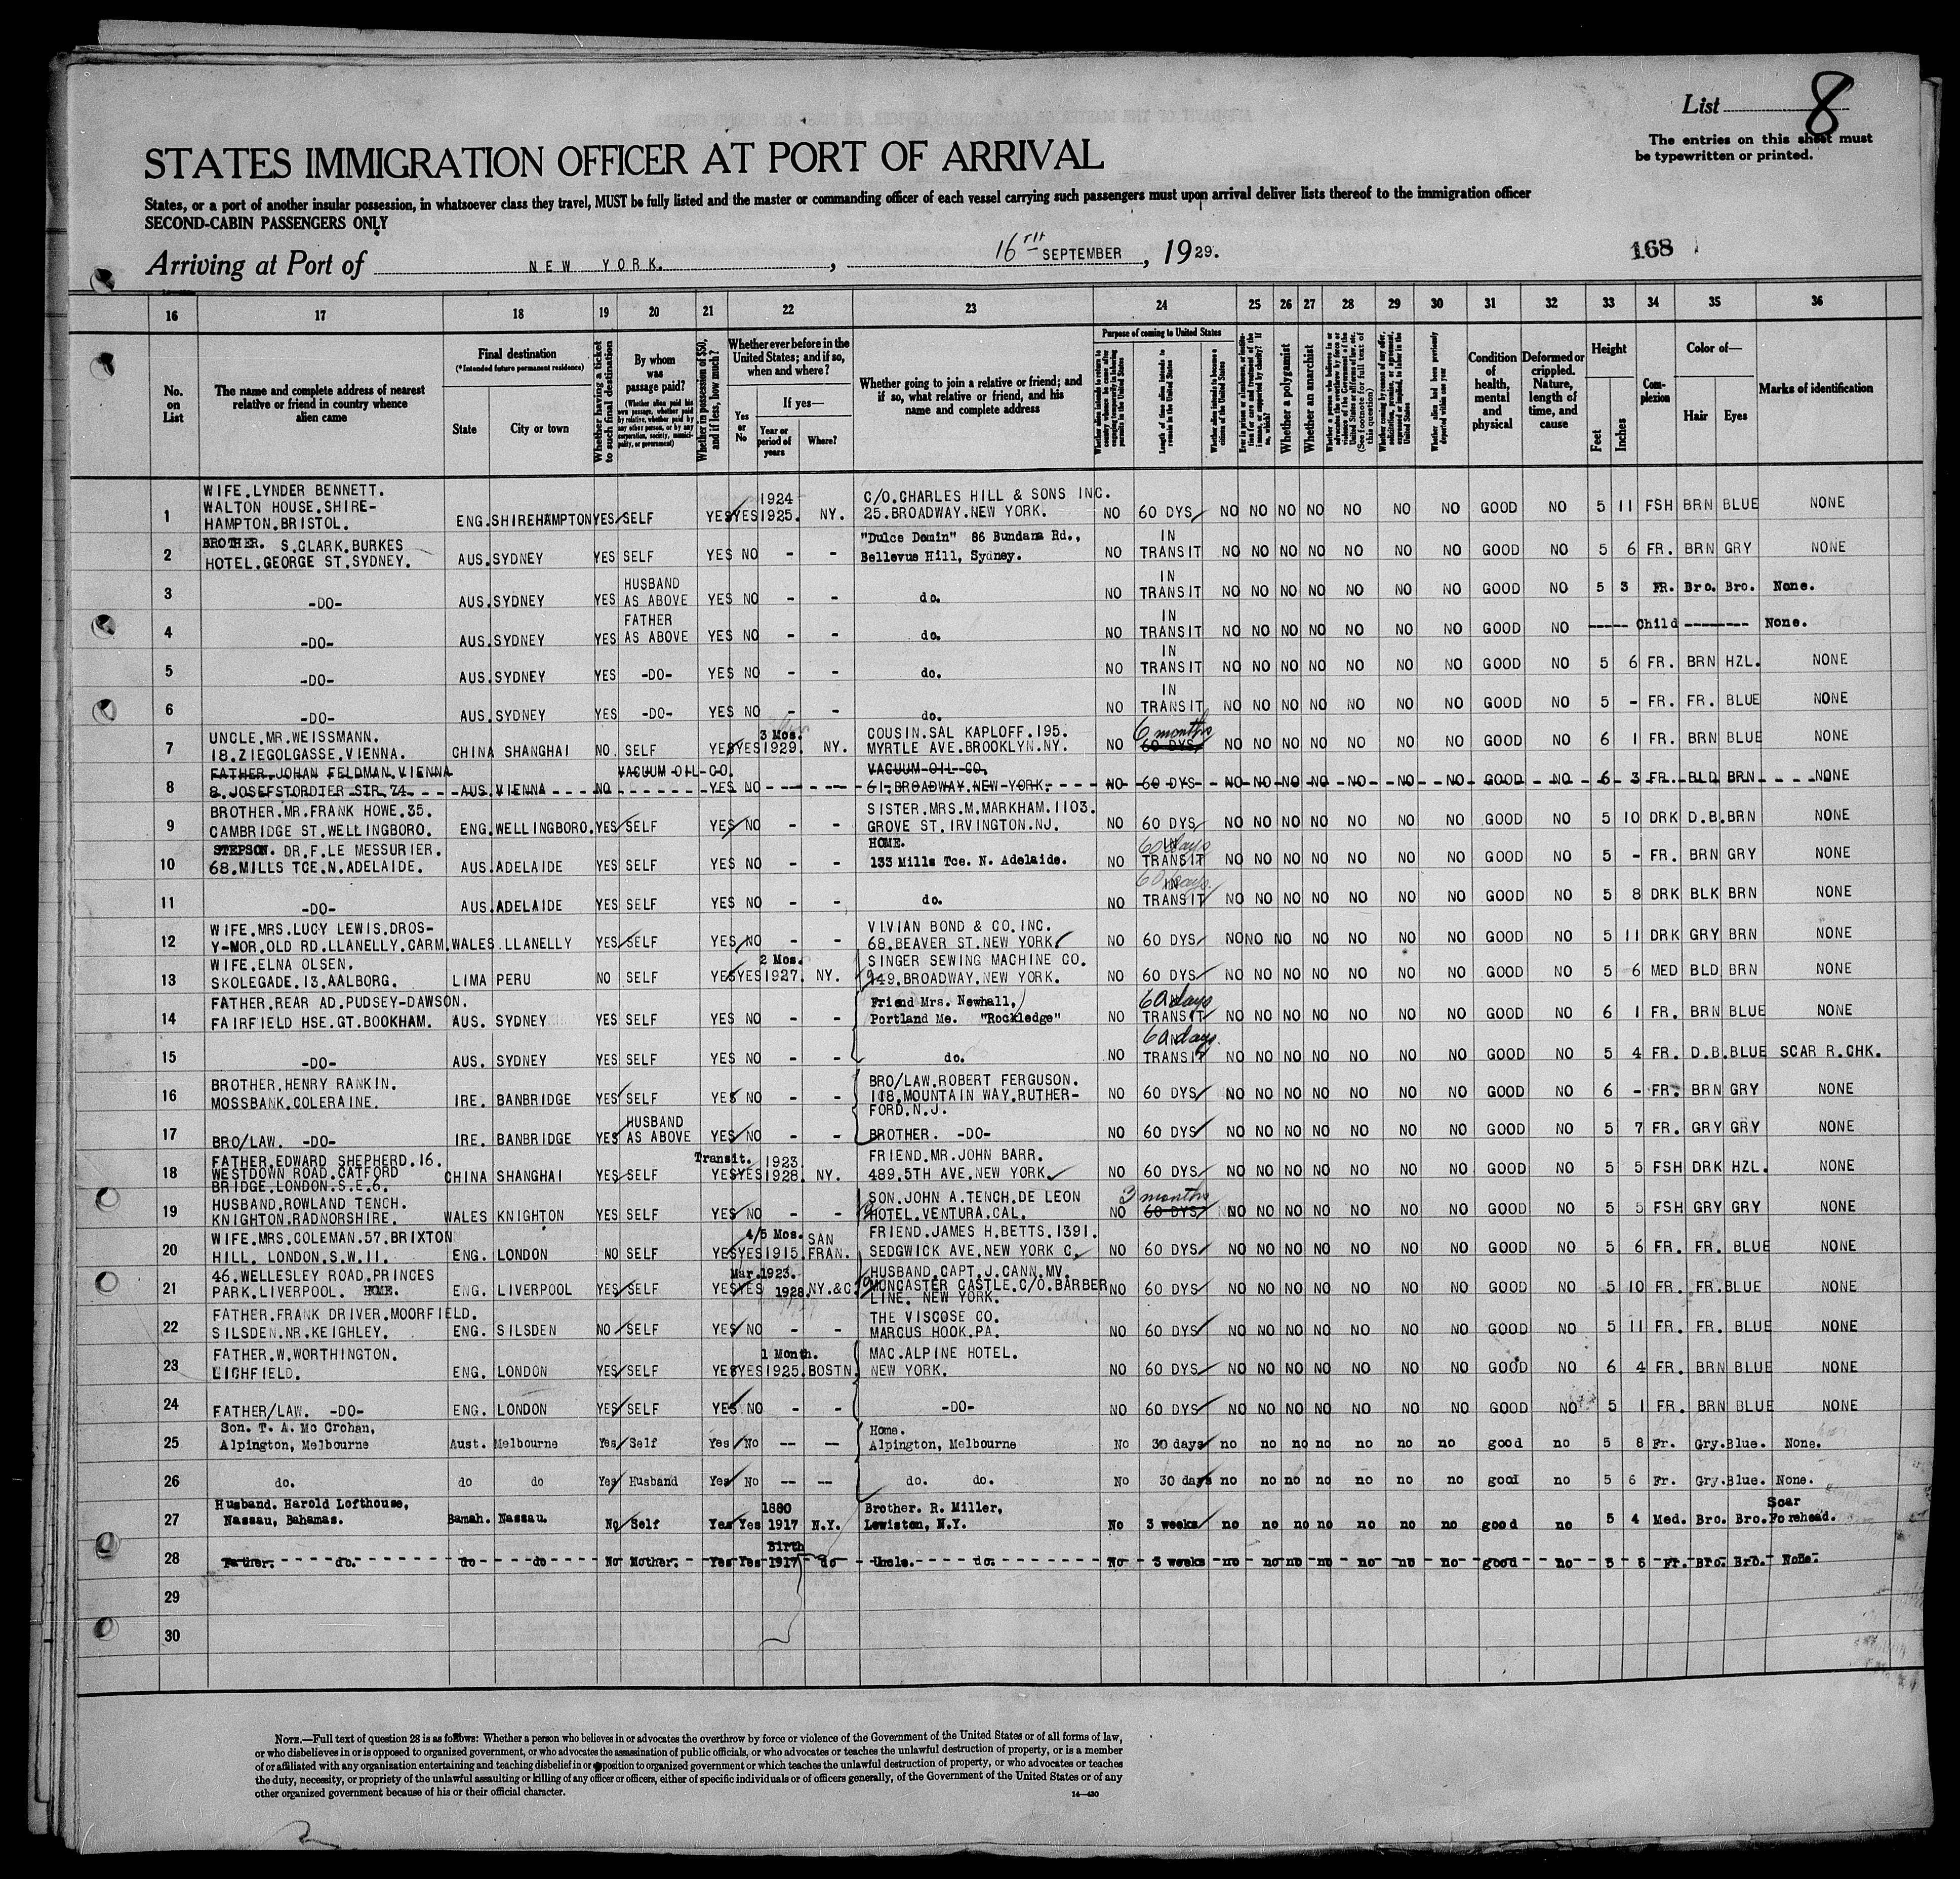 List 8
The entries on this sheet must
be typewritten or printed.
STATES IMMIGRATION OFFICER AT PORT OF ARRIVAL
States, or a port of another insular possession, in whatsoever class they travel, MUST be fully listed and the master or commanding officer of each vessel carrying such passengers must upon arrival deliver lists thereof to the immigration officer
SECOND-CABIN PASSENGERS ONLY
Arriving at Port of NEW YORK. , 16TH SEPTEMBER , 1929.
168
16 17 18 19 20 21 22 23 24 25 26 27 28 29 30 31 32 33 34 35 36
No. on List
The name and complete address of nearest relative or friend in country whence alien came
Final destination
(*Intended future permanent residence)
State
City or town
Whether having a ticket to such final destination
By whom was passage paid?
(Whether alien paid his own passage, whether paid by relative, whether paid by any other person, or by any corporation, society, municipality, or government)
Whether in possession of $50, and if less, how much?
Whether ever before in the United States; and if so, when and where?
Yes or No
If yes—
Year or period of years
Where?
Whether going to join a relative or friend; and if so, what relative or friend, and his name and complete address
Purpose of coming to United States
Length of time alien intends to remain in the United States
Whether alien intends to become a citizen of the United States
Whether a polygamist
Whether an anarchist
Condition of health, mental and physical
Deformed or crippled. Nature, length of time, and cause
Height
Feet
Inches
Complexion
Color of—
Hair
Eyes
Marks of identification
WIFE.LYNDER BENNETT. 1924 C/O.CHARLES HILL & SONS INC.
WALTON HOUSE.SHIRE-
1 HAMPTON.BRISTOL. ENG. SHIREHAMPTON YES SELF YES YES 1925. NY. 25.BROADWAY.NEW YORK. NO 60 DYS NO NO NO NO NO NO NO GOOD NO 5 11 FSH BRN BLUE NONE
BROTHER. S.CLARK.BURKES "Dulce Domin" 86 Bundara Rd., IN
2 HOTEL.GEORGE ST.SYDNEY. AUS. SYDNEY YES SELF YES NO - - Bellevue Hill, Sydney. NO TRANSIT NO NO NO NO NO NO NO GOOD NO 5 6 FR. BRN GRY NONE
HUSBAND IN
3 -DO- AUS. SYDNEY YES AS ABOVE YES NO - - do. NO TRANSIT NO NO NO NO NO NO NO GOOD NO 5 3 FR. Bro. Bro. None.
FATHER IN
4 -DO- AUS. SYDNEY YES AS ABOVE YES NO - - do. NO TRANSIT NO NO NO NO NO NO NO GOOD NO ----- Child ------- None.
IN
5 -DO- AUS. SYDNEY YES -DO- YES NO - - do. NO TRANSIT NO NO NO NO NO NO NO GOOD NO 5 6 FR. BRN HZL. NONE
IN
6 -DO- AUS. SYDNEY YES -DO- YES NO - - do. NO TRANSIT NO NO NO NO NO NO NO GOOD NO 5 - FR. FR. BLUE NONE
UNCLE.MR.WEISSMANN. 3 Mos. COUSIN.SAL KAPLOFF.195. 6 months
7 18.ZIEGOLGASSE.VIENNA. CHINA SHANGHAI NO. SELF YES YES 1929. NY. MYRTLE AVE.BROOKLYN.NY. NO 60 DYS NO NO NO NO NO NO NO GOOD NO 6 1 FR. BRN BLUE NONE
FATHER.JOHAN FELDMAN.VIENNA VACUUM OIL CO. VACUUM OIL CO.
8 8.JOSEFSTORDTER STR.74 AUS. VIENNA NO YES NO 61.BROADWAY.NEW YORK. NO 60 DYS NO NO NO NO NO NO NO GOOD NO 6 3 FR. BLD BRN NONE
BROTHER.MR.FRANK HOWE.35. SISTER.MRS.M.MARKHAM.1103.
9 CAMBRIDGE ST.WELLINGBORO. ENG. WELLINGBORO. YES SELF YES NO - - GROVE ST.IRVINGTON.NJ. NO 60 DYS NO NO NO NO NO NO NO GOOD NO 5 10 DRK D.B. BRN NONE
STEPSON. DR.F.LE MESSURIER. HOME. 60 days IN
10 68.MILLS TCE.N.ADELAIDE. AUS. ADELAIDE YES SELF YES NO - - 133 Mills Tce. N. Adelaide. NO TRANSIT NO NO NO NO NO NO NO GOOD NO 5 - FR. BRN GRY NONE
60 days. IN
11 -DO- AUS. ADELAIDE YES SELF YES NO - - do. NO TRANSIT NO NO NO NO NO NO NO GOOD NO 5 8 DRK BLK BRN NONE
WIFE.MRS.LUCY LEWIS.DROS- VIVIAN BOND & CO.INC.
12 Y-MOR.OLD RD.LLANELLY.CARM. WALES. LLANELLY YES SELF YES NO - - 68.BEAVER ST.NEW YORK. NO 60 DYS NO NO NO NO NO NO NO GOOD NO 5 11 DRK GRY BRN NONE
WIFE.ELNA OLSEN. 2 Mos. SINGER SEWING MACHINE CO.
13 SKOLEGADE.13.AALBORG. LIMA PERU NO SELF YES YES 1927. NY. 149.BROADWAY.NEW YORK. NO 60 DYS NO NO NO NO NO NO NO GOOD NO 5 6 MED BLD BRN NONE
FATHER.REAR AD.PUDSEY-DAWSON. Friend Mrs. Newhall, 60 days
14 FAIRFIELD HSE.GT.BOOKHAM. AUS. SYDNEY YES SELF YES NO - - Portland Me. "Rockledge" NO TRANSIT NO NO NO NO NO NO NO GOOD NO 6 1 FR. BRN BLUE NONE
60 days.
15 -DO- AUS. SYDNEY YES SELF YES NO - - do. NO TRANSIT NO NO NO NO NO NO NO GOOD NO 5 4 FR. D.B. BLUE SCAR R.CHK.
BROTHER.HENRY RANKIN. BRO/LAW.ROBERT FERGUSON.
16 MOSSBANK.COLERAINE. IRE. BANBRIDGE YES SELF YES NO - - 118.MOUNTAIN WAY.RUTHER- NO 60 DYS NO NO NO NO NO NO NO GOOD NO 6 - FR. BRN GRY NONE
FORD.N.J.
HUSBAND
17 BRO/LAW. -DO- IRE. BANBRIDGE YES AS ABOVE YES NO - - BROTHER. -DO- NO 60 DYS NO NO NO NO NO NO NO GOOD NO 5 7 FR. GRY GRY NONE
FATHER.EDWARD SHEPHERD.16. Transit. 1923 FRIEND.MR.JOHN BARR.
18 WESTDOWN ROAD.CATFORD CHINA SHANGHAI YES SELF YES YES 1928. NY. 489.5TH AVE.NEW YORK. NO 60 DYS NO NO NO NO NO NO NO GOOD NO 5 5 FSH DRK HZL. NONE
BRIDGE.LONDON.S.E.6.
HUSBAND.ROWLAND TENCH. SON.JOHN A.TENCH.DE LEON 3 months
19 KNIGHTON.RADNORSHIRE. WALES KNIGHTON YES SELF YES NO - - HOTEL.VENTURA.CAL. NO 60 DYS NO NO NO NO NO NO NO GOOD NO 5 5 FSH GRY GRY NONE
WIFE.MRS.COLEMAN.57.BRIXTON 4/5 Mos. SAN FRIEND.JAMES H.BETTS.1391.
20 HILL. LONDON.S.W.11. ENG. LONDON NO SELF YES YES 1915. FRAN. SEDGWICK AVE.NEW YORK C. NO 60 DYS NO NO NO NO NO NO NO GOOD NO 5 6 FR. FR. BLUE NONE
46.WELLESLEY ROAD.PRINCES Mar.1923. HUSBAND.CAPT.J.CANN.MV.
21 PARK.LIVERPOOL. HOME. ENG. LIVERPOOL YES SELF YES YES 1928. NY.&C. MUNCASTER CASTLE.C/O.BARBER NO 60 DYS NO NO NO NO NO NO NO GOOD NO 5 10 FR. FR. BLUE NONE
LINE. NEW YORK.
FATHER.FRANK DRIVER.MOORFIELD. THE VISCOSE CO.
22 SILSDEN.NR.KEIGHLEY. ENG. SILSDEN NO SELF YES NO - - MARCUS HOOK.PA. NO 60 DYS NO NO NO NO NO NO NO GOOD NO 5 11 FR. FR. BLUE NONE
FATHER.W.WORTHINGTON. 1 Month. MAC.ALPINE HOTEL.
23 LICHFIELD. ENG. LONDON YES SELF YES YES 1925. BOSTN. NEW YORK. NO 60 DYS NO NO NO NO NO NO NO GOOD NO 6 4 FR. BRN BLUE NONE
24 FATHER/LAW. -DO- ENG. LONDON YES SELF YES NO - - -DO- NO 60 DYS NO NO NO NO NO NO NO GOOD NO 5 1 FR. BRN BLUE NONE
Son. T. A. Mc Crohan, Home.
25 Alpington, Melbourne Aust. Melbourne Yes Self Yes No -- -- Alpington, Melbourne No 30 days no no no no no no no good no 5 8 Fr. Gry. Blue. None.
26 do. do do Yes Husband Yes No -- -- do. do. No 30 days no no no no no no no good no 5 6 Fr. Gry. Blue. None.
Husband. Harold Lofthouse, 1880 Brother. R. Miller, Scar
27 Nassau, Bahamas. Bamah. Nassau. No Self Yes Yes 1917 N.Y. Lewiston, N.Y. No 3 weeks no no no no no no no good no 5 4 Med. Bro. Bro. Forehead.
Birth
28 Father. do. do do No Mother. Yes Yes 1917 do Uncle. do. No 3 weeks no no no no no no no good no 5 6 Fr. Bro. Bro. None.
29
30
NOTE.—Full text of question 28 is as follows: Whether a person who believes in or advocates the overthrow by force or violence of the Government of the United States or of all forms of law,
or who disbelieves in or is opposed to organized government, or who advocates the assassination of public officials, or who advocates or teaches the unlawful destruction of property, or is a member
of or affiliated with any organization entertaining and teaching disbelief in or opposition to organized government or which teaches the unlawful destruction of property, or who advocates or teaches
the duty, necessity, or propriety of the unlawful assaulting or killing of any officer or officers, either of specific individuals or of officers generally, of the Government of the United States or of any
other organized government because of his or their official character.
14—430